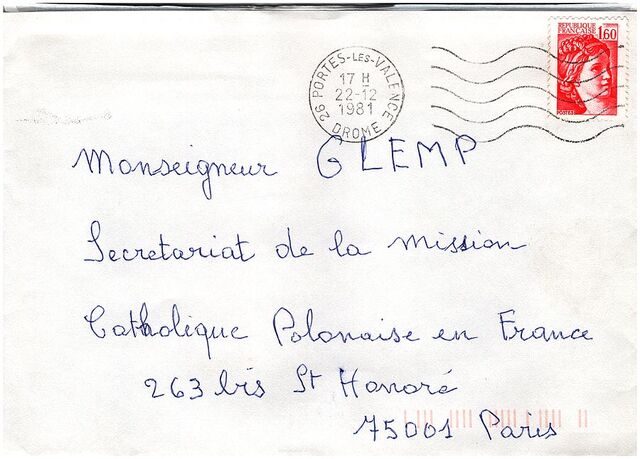 REPUBLIQUE
FRANÇAISE 1,60
POSTES
26 PORTES-LES-VALENCE
17 H
22-12
1981
DROME
Monseigneur GLEMP
Secretariat de la Mission
Catholique Polonaise en France
263 bis St Honoré
75001 Paris